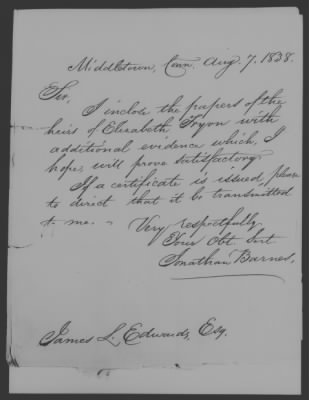 Middletown, Conn. Aug. 7. 1838.
Sir,
I inclose the papers of the
heirs of Elizabeth Tryon with
additional evidence which, I
hope, will prove satisfactory.
If a certificate is issued please
to direct that it be transmitted
to me. Very respectfully
Your Obt. Svt.
Jonathan Barnes.
James L. Edwards, Esq.